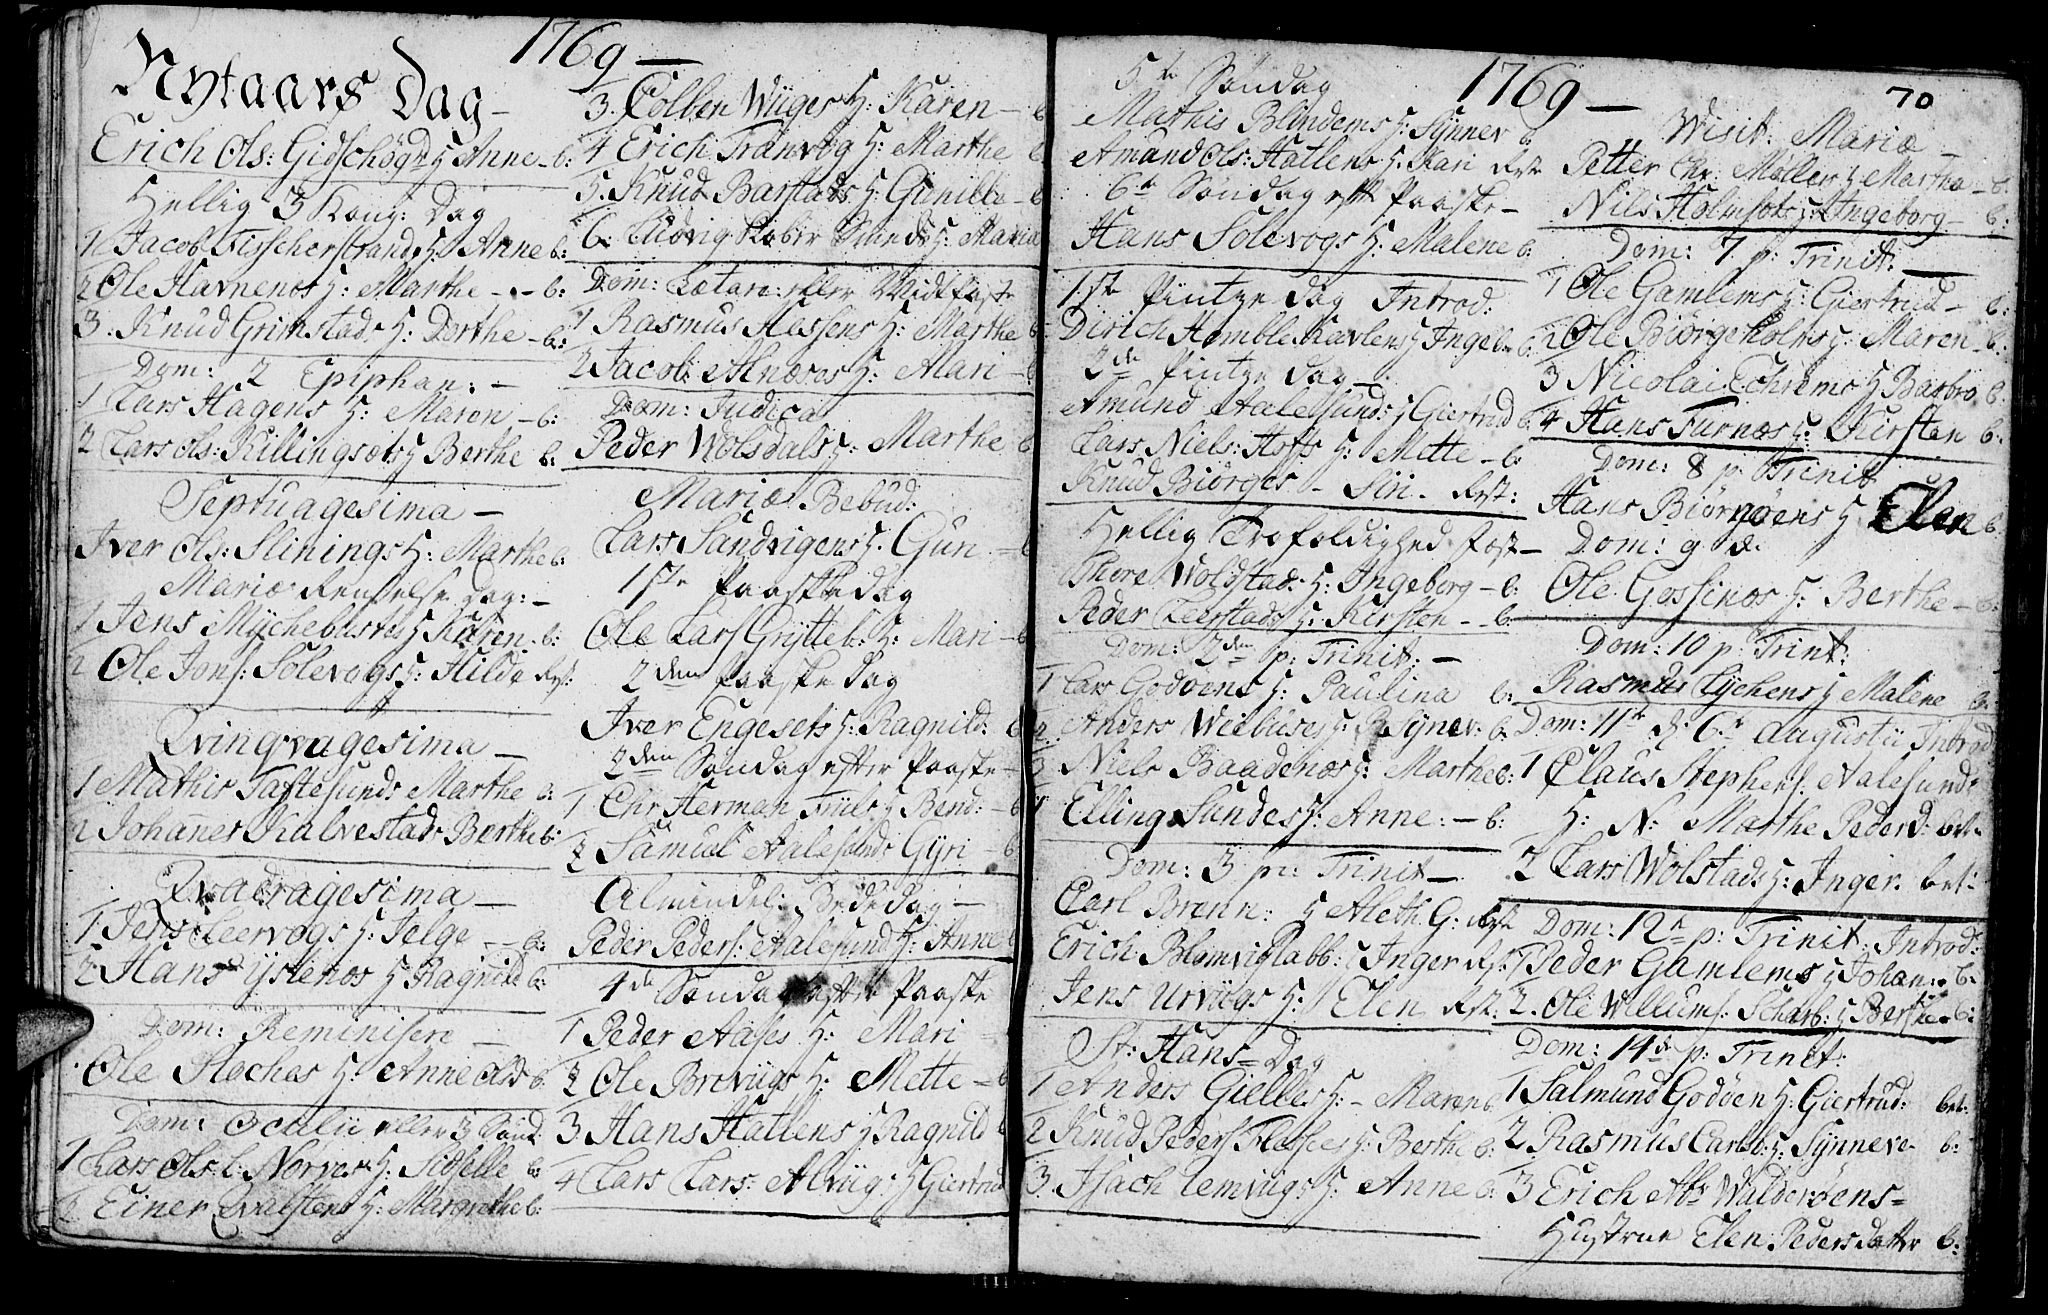 1769 —
Nytaars Dag —
Erich Ols: Gidschög H Anne - b:
Hellig 3 Kong: Dag
1 Jacob Fisscherstrands H: Anne b:
2 Ole Havnenes H: Marthe - - b:
3. Knud Grimstads H: Dorthe - b:
Dom: 2 Epiphan: —
1 Lars Hagens H: Maren - b:
2 Lars Ols: Killingsöts H Berthe b:
Septuagesima —
Iver Ols: Slinings H: Marthe b:
Mariæ Renselse Dag: -
1 Jens Mychebustes H Karen. b:
2 Ole Jons: Solevogs H: Hilde
Qvinqvagesima —
1 Mathis Taftesunds Marthe b:
2 Johannes Kalvestads Berthe b:
Qvadragesima —
1 Jens Leervogs H: Jelge - - b:
2 Hans Ystenæs H Ragnild b:
Dom: Reminisere —
Ole Sloches H: Anne Olsd b:
Dom: Oculii eller 3 Sönd:
1 Lars Ols: L: Norvei H: Sidselle b:
2 Einer Qvalsteins H: Margrithe b:
3. Colben Wiiges H: Karen - b
4 Erich Tranvog H: Marthe b
5. Knud Barstads H: Gunilla - b
6. Ludvig Kobbersmeds H: Maria
Dom: Lætare eller Midfaste
1 Rasmus Hessens H: Marthe b
2 Jacob Alnæses H: Mari - b
Dom: Judica
Peder Wolsdals H: Marthe b
Mariæ Bebud:
Lars Sandvigens H: Gun - b
1ste Paaskedag
Ole Lars Grytteb: H: Mari - b
2den Paaske Dag
Iver Engesets H: Ragnild: b
2den Söndag efter Paaske -
1 Chr Herman Friis H Bend: - b
2 Samuel Aalesunds Gyri - b
Almindel: Bededag —
Peder Peders: Aalesund H: Anne b
4de Söndag efter Paaske
1 Peder Aases H: Mari -
2 Ole Breviigs H: Mette - b
3 Hans Hatlens H Ragnild b
4 Lars Lars: Alviigs H Giertrud
1769 —
70
5te Söndag
Mathis Blindems H: Synnev b:
Amund Ols: Hatlens H: Kari
6te Söndag eft Paaske -
Hans Solevogs H: Malene b:
1ste Pintze Dag Introd:
Dirich Humble H Ingeb: b:
2de Pintze Dag —
Amund Aalesund: H Giertrud b:
Lars Niels: Hofs H: Mette - b:
Knud Biörges - Siri -
Hellig Trefoldighed Fest -
Thore Woldstad: H: Ingeborg - b:
Peder Leerstads H: Kirsten - - b:
Dom: 2den p: Trinit: —
1 Lars Godöens H: Paulina b:
2. Anders H: Synev: b:
3 Niels Baadenæs H: Marthe b:
4 Elling Sundes H: Anne: - b:
Dom: 3 p: Trinit —
Carl Brenn: H Aleth G:
Erich Blomvig Labb: H Inger
Jens Urviigs H: Elen
St: Hans = Dag
1 Anders Gielles H: - Maren b:
2 Knud Peders H: Berthe b:
3. Isach Lemviigs H: Anne b:
Wisit: Mariæ —
Petter Chr: Möllers H Martha - b:
Nils Holmsets H: Ingeborg - b:
Dom: 7 p: Trinit: —
1 Ole Gamlems H: Giertrud - b:
2 Ole Biörgeholms H: Maren - b:
3 Nicolai Echrems H Barbro b:
4 Hans Furnæs H: Kirsten b:
Dom: 8 p: Trinit
Hans Biörnöens H Elen b:
Dom: 9 d:
Ole Gossinæs H: Berthe - b:
Dom: 10 p: Trint:
Rasmus Lychens H Malene b:
Dom: 11te d: 6te Augustii Introd:
1 Claus Stephens: Aalesunds
H: N: Marthe Pederd: bet:
2 Lars Wolstads H: Inger. bet:
Dom: 12te p: Trinit: Introd:
1 Peder Gamlems H Johan: b:
2. Ole Willums: Scharb: H Berthe b:
Dom: 14de p: Trinit:
1 Salmund Godöen H: Giertrud: bet:
2 Rasmus Carls: H: Synneve b:
3 Erich Ab: Walderöens =
Hustrue Elen Peders datter b: